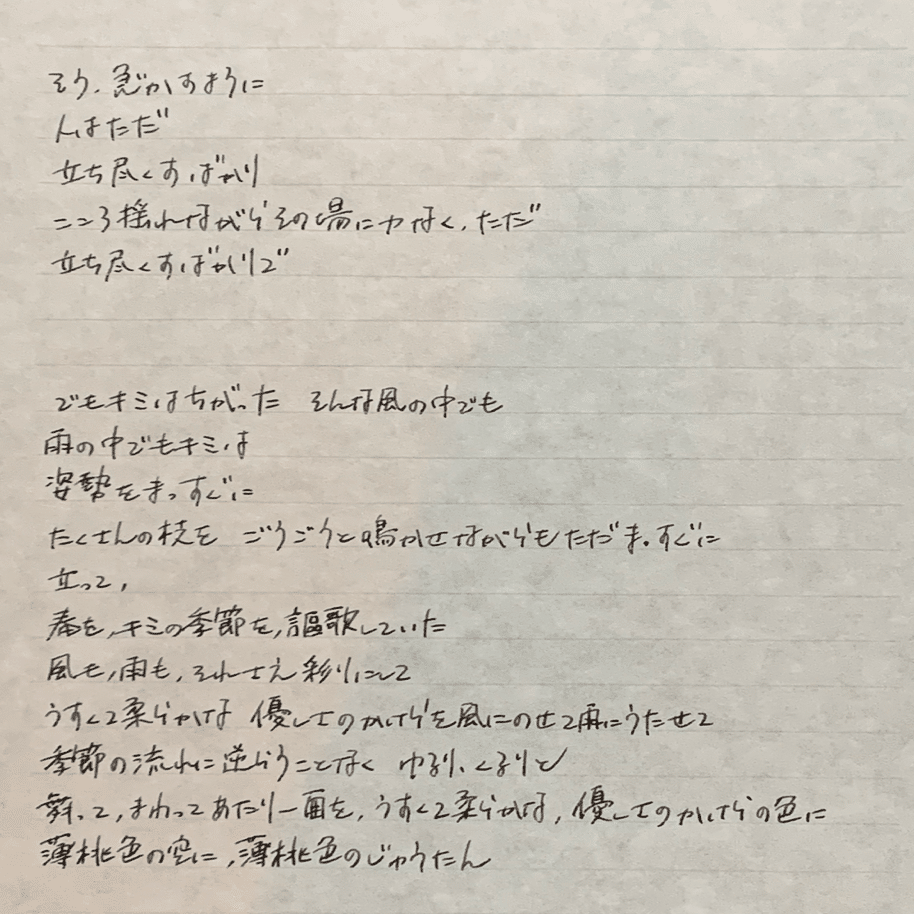 そう、急かすように
人はただ
立ち尽くすばかり
こころ揺れながらその場に力なく、ただ
立ち尽くすばかりで
でもキミはちがった そんな風の中でも
雨の中でもキミは
姿勢をまっすぐに
たくさんの枝を ごうごうと鳴かせながらもただまっすぐに
立って、
春を、キミの季節を、謳歌していた
風も、雨も、それさえ彩りにして
うすくて柔らかな 優しさのかけらを風にのせて雨にうたせて
季節の流れに逆らうことなく ゆるり、くるりと
舞って、まわってあたり一面を、うすくて柔らかな、優しさのかけらの色に
薄桃色の空に、薄桃色のじゅうたん